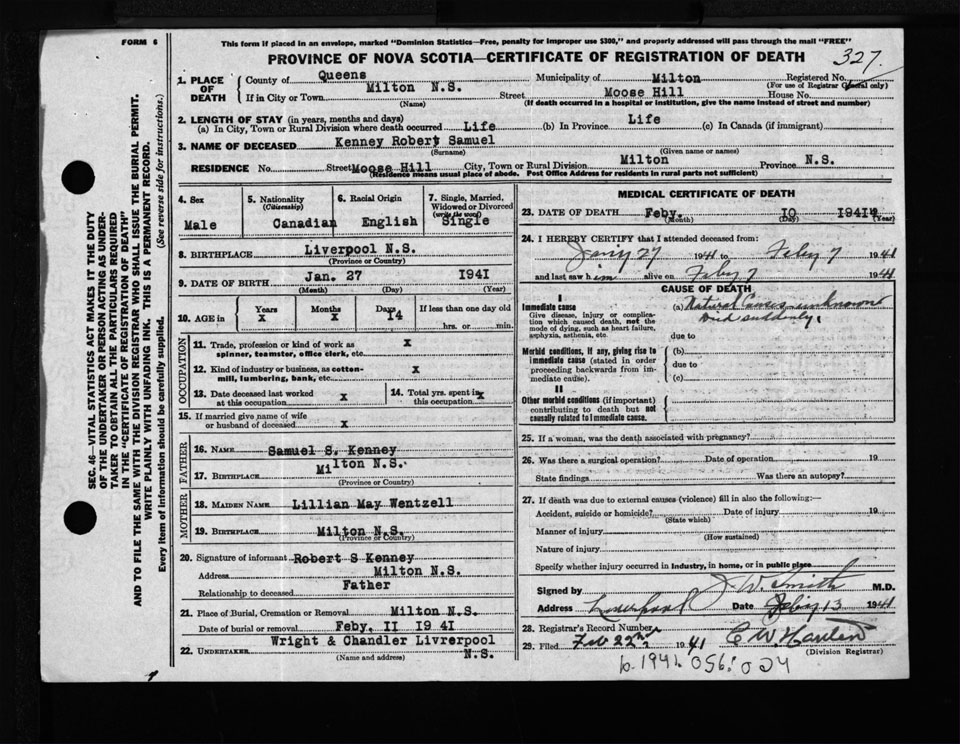 FORM 6
This form if placed in an envelope, marked "Dominion Statistics—Free, penalty for improper use $300," and properly addressed will pass through the mail "FREE"
PROVINCE OF NOVA SCOTIA—CERTIFICATE OF REGISTRATION OF DEATH
327.
1. PLACE OF DEATH
County of Queens Municipality of Milton Registered No.
(For use of Registrar General only)
If in City or Town Milton N.S. Street Moose Hill House No.
(Name) (If death occurred in a hospital or institution, give the name instead of street and number)
2. LENGTH OF STAY (in years, months and days)
(a) In City, Town or Rural Division where death occurred Life (b) In Province Life (c) In Canada (if immigrant)
3. NAME OF DECEASED Kenney Robert Samuel
(Surname) (Given name or names)
RESIDENCE No. Street Moose Hill City, Town or Rural Division Milton Province N.S.
(Residence means usual place of abode. Post Office Address for residents in rural parts not sufficient)
4. Sex
Male
5. Nationality
(Citizenship)
Canadian
6. Racial Origin
English
7. Single, Married, Widowed or Divorced
(write the word)
Single
8. BIRTHPLACE Liverpool N.S.
(Province or Country)
9. DATE OF BIRTH Jan. 27 194I
(Month) (Day) (Year)
10. AGE in
Years Months Days If less than one day old
X X I4 hrs. or min.
OCCUPATION
11. Trade, profession or kind of work as spinner, teamster, office clerk, etc. X
12. Kind of industry or business, as cotton-mill, lumbering, bank, etc. X
13. Date deceased last worked at this occupation X
14. Total yrs. spent in this occupation X
15. If married give name of wife or husband of deceased X
FATHER
16. NAME Samuel S. Kenney
17. BIRTHPLACE Milton N.S.
(Province or Country)
MOTHER
18. MAIDEN NAME Lillian May Wentzell
19. BIRTHPLACE Milton N.S.
(Province or Country)
20. Signature of informant Robert S Kenney
Address Milton N.S.
Relationship to deceased Father
21. Place of Burial, Cremation or Removal Milton N.S.
Date of burial or removal Feby. II 19 4I
22. UNDERTAKER Wright & Chandler Livrerpool N.S.
(Name and address)
MEDICAL CERTIFICATE OF DEATH
23. DATE OF DEATH Feby. IO 194I
(Month) (Day) (Year)
24. I HEREBY CERTIFY that I attended deceased from:
Jan'y 27 1941 to Feby 7 1941
and last saw him alive on Feby 7 1941
CAUSE OF DEATH
I
Immediate cause
Give disease, injury or complication which caused death, not the mode of dying, such as heart failure, asphyxia, asthenia, etc.
(a) Natural Causes unknown
Died suddenly.
due to
Morbid conditions, if any, giving rise to immediate cause (stated in order proceeding backwards from immediate cause).
(b)
due to
(c)
II
Other morbid conditions (if important) contributing to death but not causally related to immediate cause.
25. If a woman, was the death associated with pregnancy?
26. Was there a surgical operation? Date of operation 19
State findings Was there an autopsy?
27. If death was due to external causes (violence) fill in also the following:—
Accident, suicide or homicide? Date of injury 19
(State which)
Manner of injury
(How sustained)
Nature of injury
Specify whether injury occurred in industry, in home, or in public place
Signed by J. W. Smith M.D.
Address Liverpool Date Feby 13 1941
28. Registrar's Record Number
29. Filed Feb 22nd 1941
(Division Registrar)
b. 1941. 056: 024
SEC. 46—VITAL STATISTICS ACT MAKES IT THE DUTY
OF THE UNDERTAKER OR PERSON ACTING AS UNDER-
TAKER TO OBTAIN ALL THE PARTICULARS REQUIRED
IN THE "CERTIFICATE OF REGISTRATION OF DEATH"
AND TO FILE THE SAME WITH THE DIVISION REGISTRAR WHO SHALL ISSUE THE BURIAL PERMIT.
WRITE PLAINLY WITH UNFADING INK. THIS IS A PERMANENT RECORD.
Every item of information should be carefully supplied. (See reverse side for instructions.)